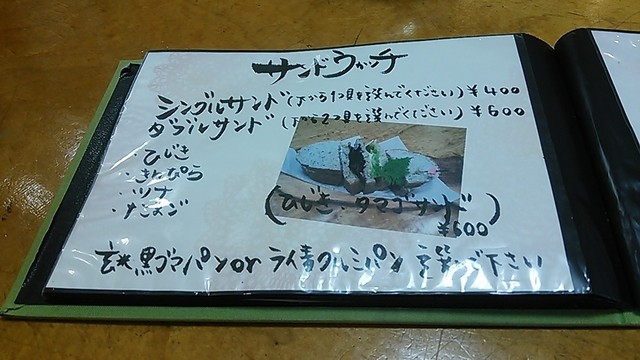 サンドウィッチ
シングルサンド(下から1つ具を選んでください) ¥400
ダブルサンド(下から2つ具を選んでください) ¥600
・ひじき
・きんぴら
・ツナ
・たまご
(ひじき・タマゴサンド)
¥600
玄米黒ゴマパン or ライ麦クルミパン を選んで下さい